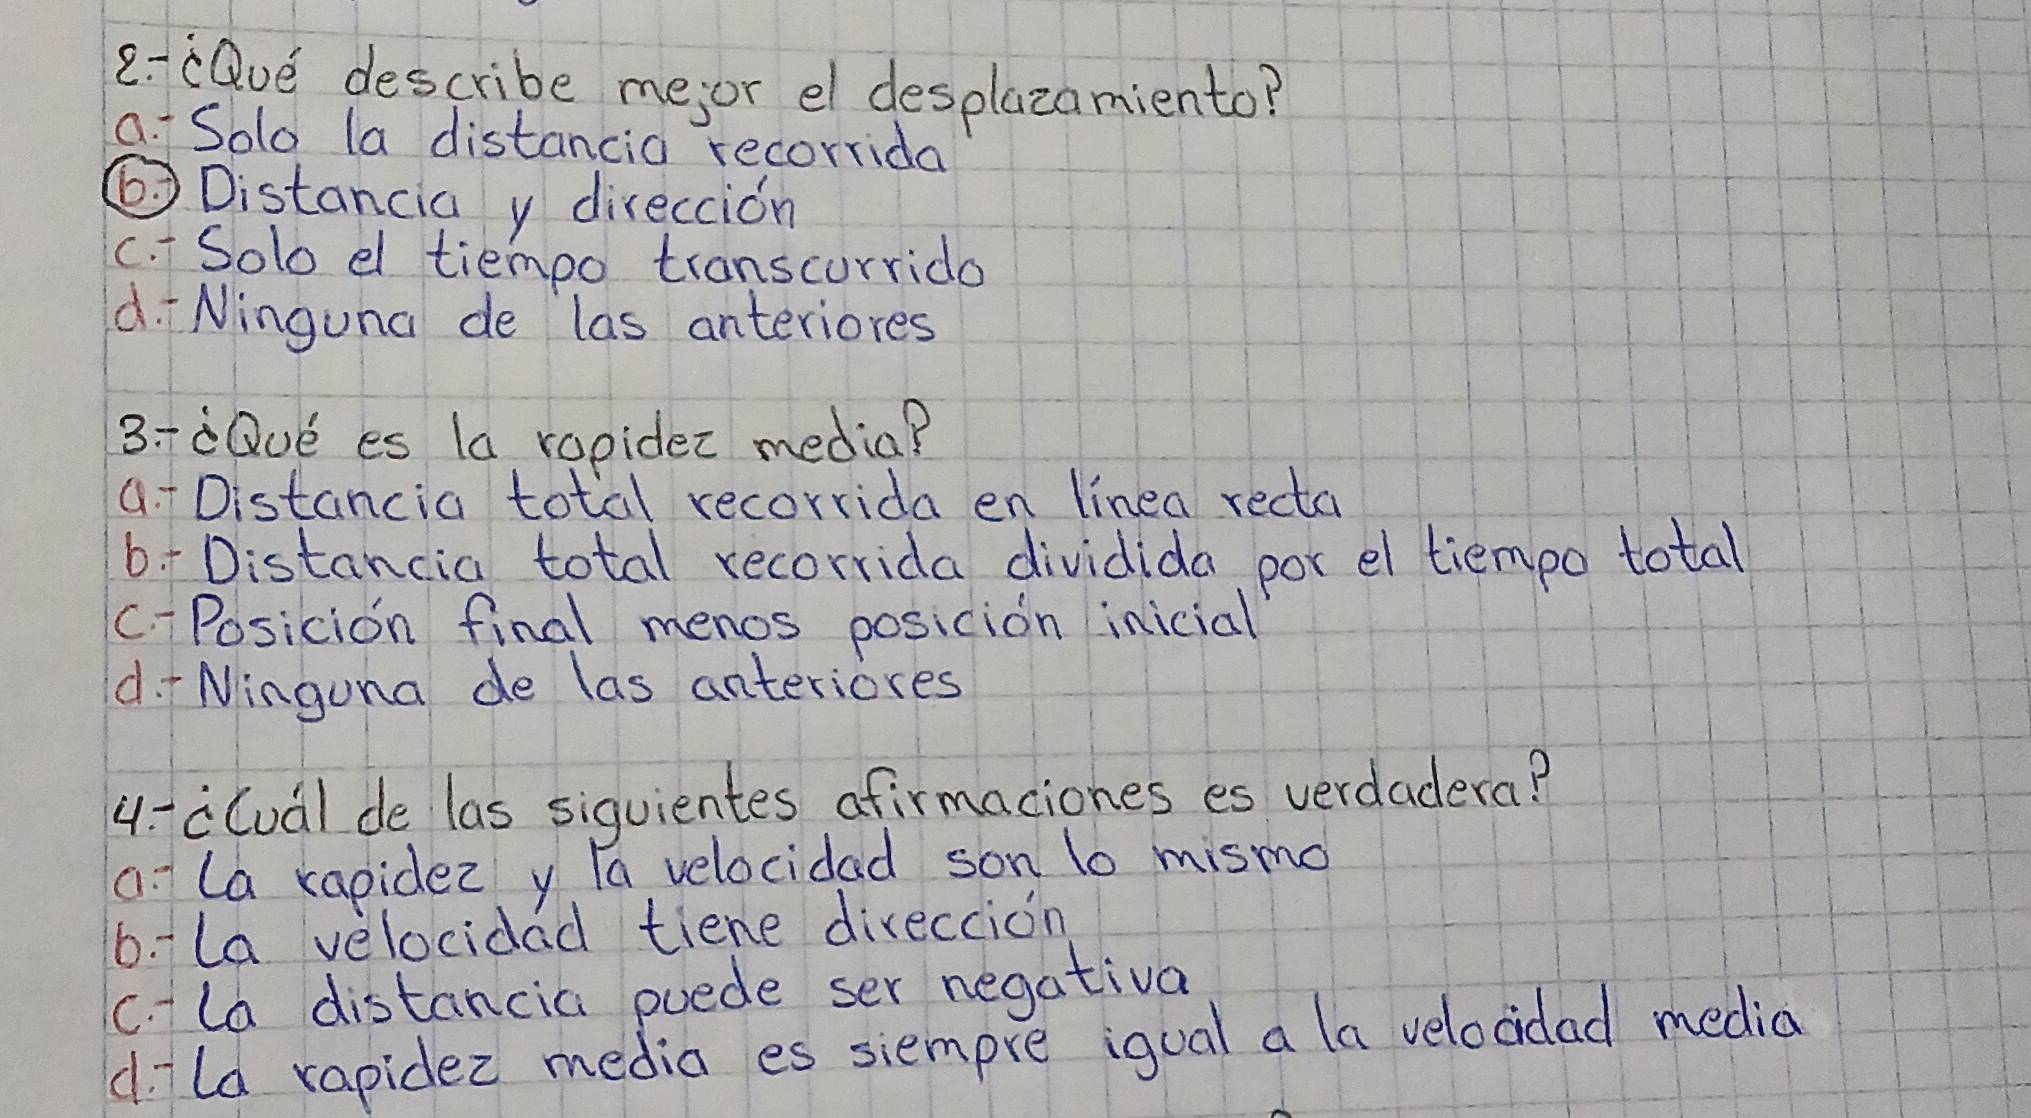 2.- ¿Qué describe mejor el desplazamiento?
a.- Solo la distancia recorrida
b.- Distancia y dirección
c.- Solo el tiempo transcurrido
d.- Ninguna de las anteriores
3.- ¿Qué es la rapidez media?
a.- Distancia total recorrida en línea recta
b.- Distancia total recorrida dividida por el tiempo total
c.- Posición final menos posición inicial
d.- Ninguna de las anteriores
4.- ¿Cuál de las siguientes afirmaciones es verdadera?
a.- La rapidez y la velocidad son lo mismo
b.- La velocidad tiene dirección
c.- La distancia puede ser negativa
d.- La rapidez media es siempre igual a la velocidad media